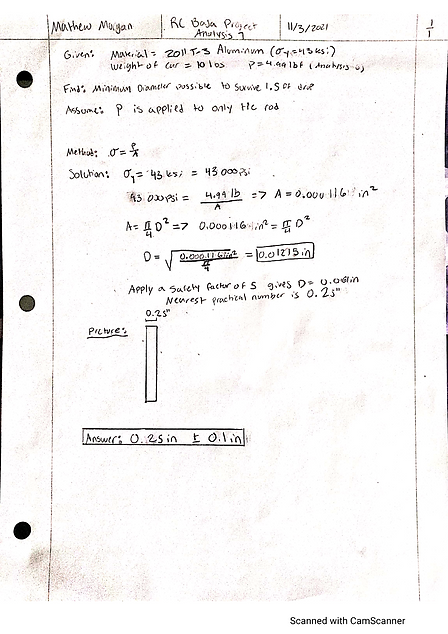 Mathew Morgan
RC Baja Project
Analysis 7
11/3/2021
1/1
Given: Material = 2011 T-3 Aluminum (σy = 43 ksi)
Weight of car = 10 lbs P = 4.99 lbf (Analysis
Find: Minimum Diameter possible to survive 1.5 ft drop
Assume: P is applied to only tie rod
Method: σ = P/A
Solution: σy = 43 ksi = 43 000 psi
43 000 psi = 4.99 lb / A => A = 0.000116 in²
A = π/4 D² => 0.000116 in² = π/4 D²
D = √(0.000116 in² / π/4) = 0.01215 in
Apply a Safety factor of 5 gives D = 0.061in
Nearest practical number is 0.25"
0.25"
Picture:
Answer: 0.25 in ± 0.1 in
Scanned with CamScanner